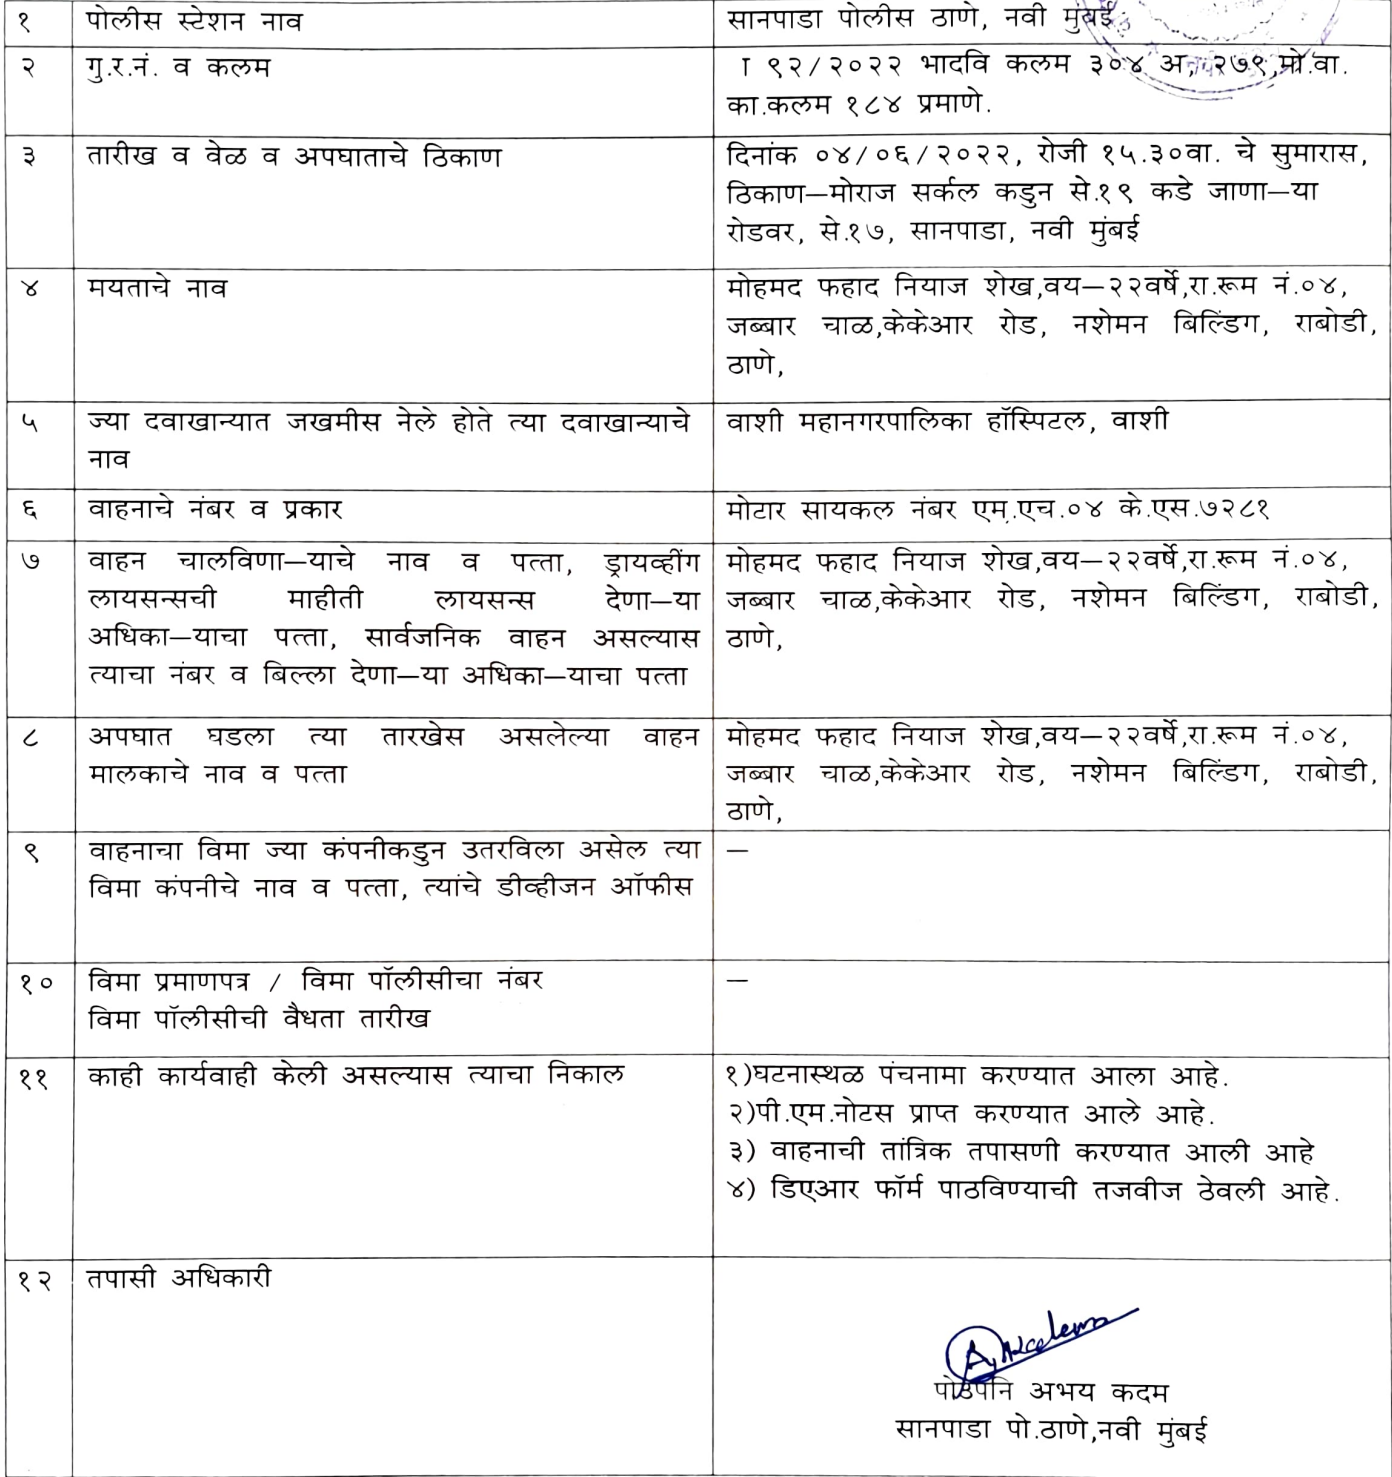 १ पोलीस स्टेशन नाव सानपाडा पोलीस ठाणे, नवी मुंबई
२ गु.र.नं. व कलम I ९२/२०२२ भादवि कलम ३०४ अ, २७९,मो.वा.
का.कलम १८४ प्रमाणे.
३ तारीख व वेळ व अपघाताचे ठिकाण दिनांक ०४/०६/२०२२, रोजी १५.३०वा. चे सुमारास,
ठिकाण—मोराज सर्कल कडुन से.१९ कडे जाणा—या
रोडवर, से.१७, सानपाडा, नवी मुंबई
४ मयताचे नाव मोहमद फहाद नियाज शेख,वय—२२वर्षे,रा.रूम नं.०४,
जब्बार चाळ,केकेआर रोड, नशेमन बिल्डिंग, राबोडी,
ठाणे,
५ ज्या दवाखान्यात जखमीस नेले होते त्या दवाखान्याचे वाशी महानगरपालिका हॉस्पिटल, वाशी
नाव
६ वाहनाचे नंबर व प्रकार मोटार सायकल नंबर एम.एच.०४ के.एस.७२८१
७ वाहन चालविणा—याचे नाव व पत्ता, ड्रायव्हींग मोहमद फहाद नियाज शेख,वय—२२वर्षे,रा.रूम नं.०४,
लायसन्सची माहीती लायसन्स देणा—या जब्बार चाळ,केकेआर रोड, नशेमन बिल्डिंग, राबोडी,
अधिका—याचा पत्ता, सार्वजनिक वाहन असल्यास ठाणे,
त्याचा नंबर व बिल्ला देणा—या अधिका—याचा पत्ता
८ अपघात घडला त्या तारखेस असलेल्या वाहन मोहमद फहाद नियाज शेख,वय—२२वर्षे,रा.रूम नं.०४,
मालकाचे नाव व पत्ता जब्बार चाळ,केकेआर रोड, नशेमन बिल्डिंग, राबोडी,
ठाणे,
९ वाहनाचा विमा ज्या कंपनीकडुन उतरविला असेल त्या —
विमा कंपनीचे नाव व पत्ता, त्यांचे डीव्हीजन ऑफीस
१० विमा प्रमाणपत्र / विमा पॉलीसीचा नंबर —
विमा पॉलीसीची वैधता तारीख
११ काही कार्यवाही केली असल्यास त्याचा निकाल १)घटनास्थळ पंचनामा करण्यात आला आहे.
२)पी.एम.नोटस प्राप्त करण्यात आले आहे.
३) वाहनाची तांत्रिक तपासणी करण्यात आली आहे
४) डिएआर फॉर्म पाठविण्याची तजवीज ठेवली आहे.
१२ तपासी अधिकारी
पोउपनि अभय कदम
सानपाडा पो.ठाणे,नवी मुंबई